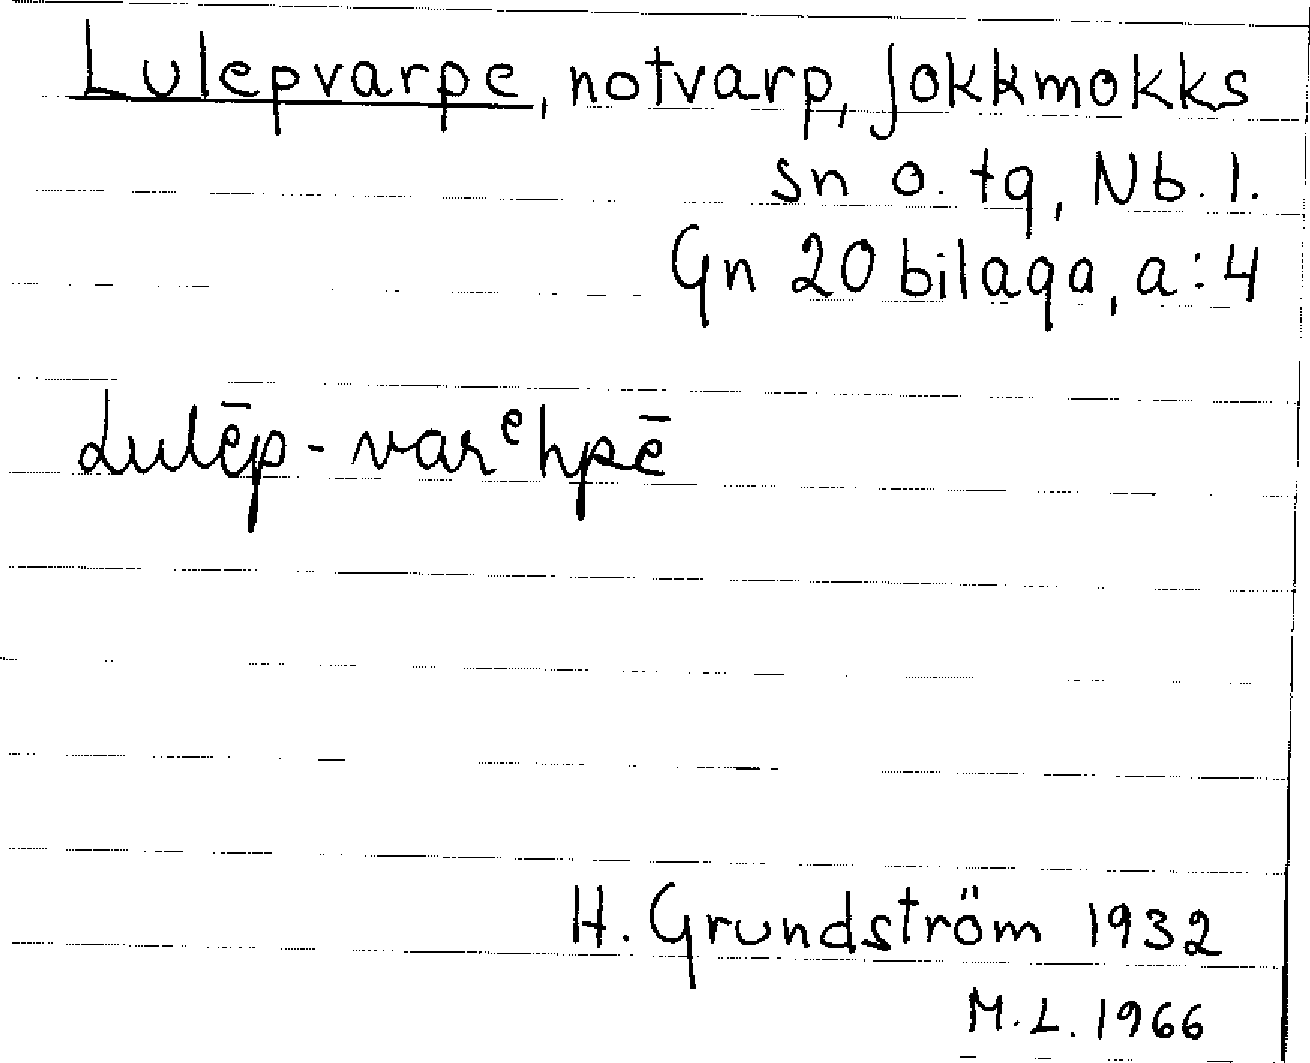 Lulepvarpe, notvarp, Jokkmokks
sn o. tg, Nb. l.
Gn 20 bilaga, a:4
Lulēp-varᵉhpē
H. Grundström 1932
M.L. 1966